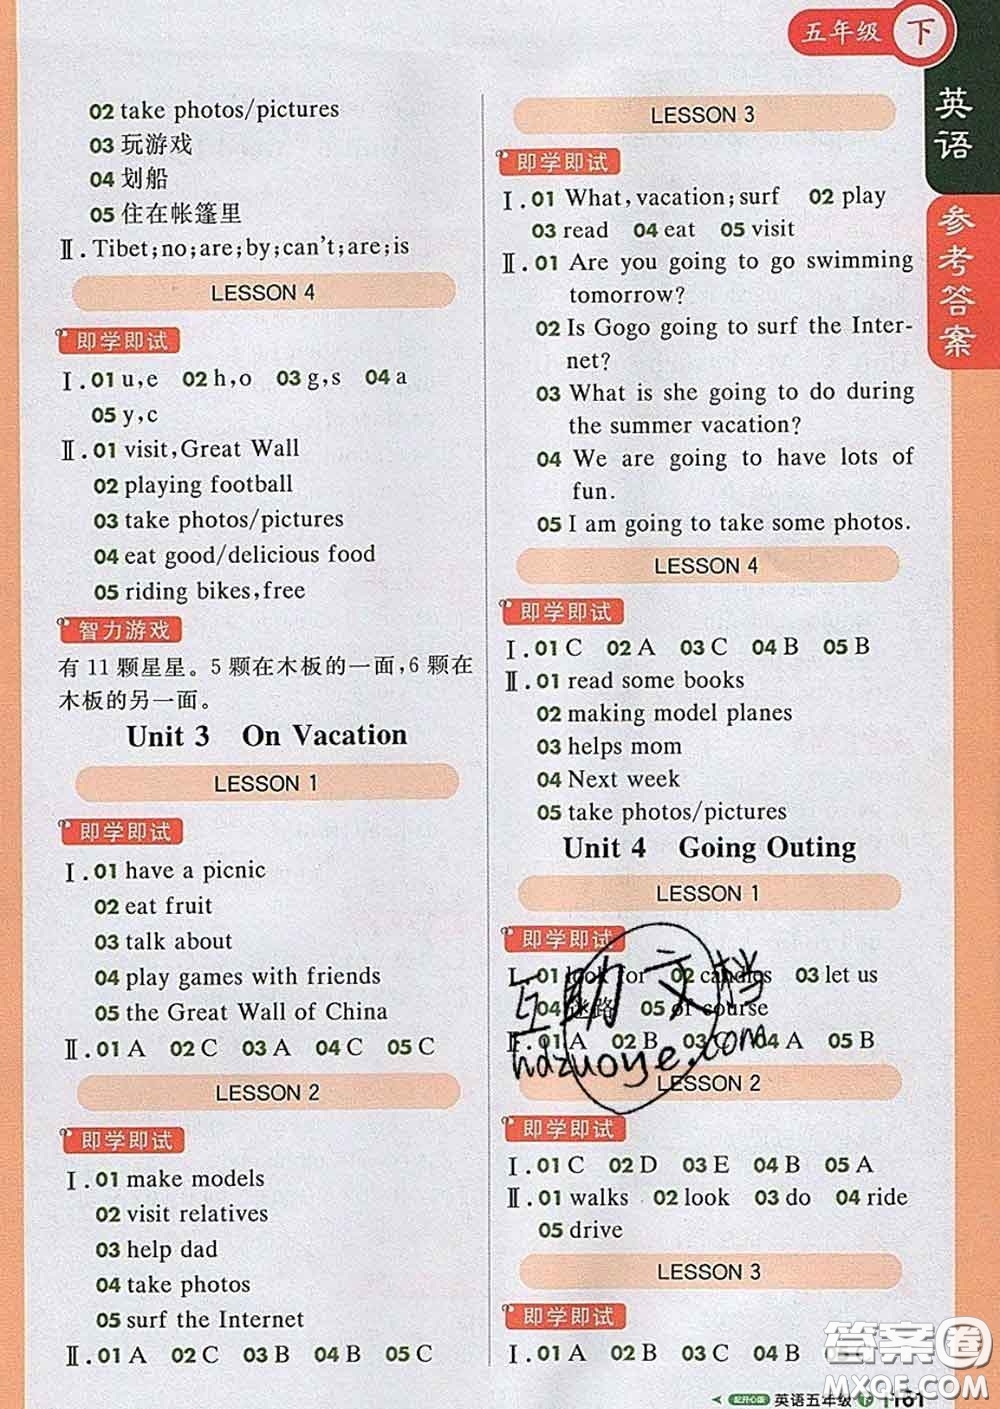 五年级 下
英语
参考答案
02 take photos/pictures
03 玩游戏
04 划船
05 住在帐篷里
Ⅱ. Tibet;no;are;by;can't;are;is
LESSON 4
即学即试
Ⅰ. 01 u,e 02 h,o 03 g,s 04 a
05 y,c
Ⅱ. 01 visit,Great Wall
02 playing football
03 take photos/pictures
04 eat good/delicious food
05 riding bikes,free
智力游戏
有 11 颗星星。5 颗在木板的一面,6 颗在
木板的另一面。
Unit 3 On Vacation
LESSON 1
即学即试
Ⅰ. 01 have a picnic
02 eat fruit
03 talk about
04 play games with friends
05 the Great Wall of China
Ⅱ. 01 A 02 C 03 A 04 C 05 C
LESSON 2
即学即试
Ⅰ. 01 make models
02 visit relatives
03 help dad
04 take photos
05 surf the Internet
Ⅱ. 01 A 02 C 03 B 04 B 05 C
LESSON 3
即学即试
Ⅰ. 01 What,vacation;surf 02 play
03 read 04 eat 05 visit
Ⅱ. 01 Are you going to go swimming
tomorrow?
02 Is Gogo going to surf the Inter-
net?
03 What is she going to do during
the summer vacation?
04 We are going to have lots of
fun.
05 I am going to take some photos.
LESSON 4
即学即试
Ⅰ. 01 C 02 A 03 C 04 B 05 B
Ⅱ. 01 read some books
02 making model planes
03 helps mom
04 Next week
05 take photos/pictures
Unit 4 Going Outing
LESSON 1
即学即试
Ⅰ. 01 look for 02 candies 03 let us
04 迷路 05 of course
Ⅱ. 01 A 02 B 03 C 04 A 05 B
互助文档
hdzuoye.com
LESSON 2
即学即试
Ⅰ. 01 C 02 D 03 E 04 B 05 A
Ⅱ. 01 walks 02 look 03 do 04 ride
05 drive
LESSON 3
即学即试
Ⅰ. 01 A 02 B 03 C 04 B 05
答案圈
MXQE.COM
配开心版 英语五年级 下 161